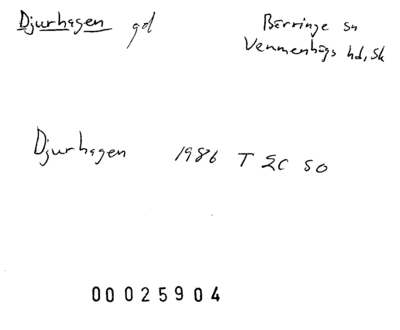 Djurhagen gd
Börringe sn
Vemmenhögs hd, Sk
Djurhagen 1986 T 2C SO
00025904